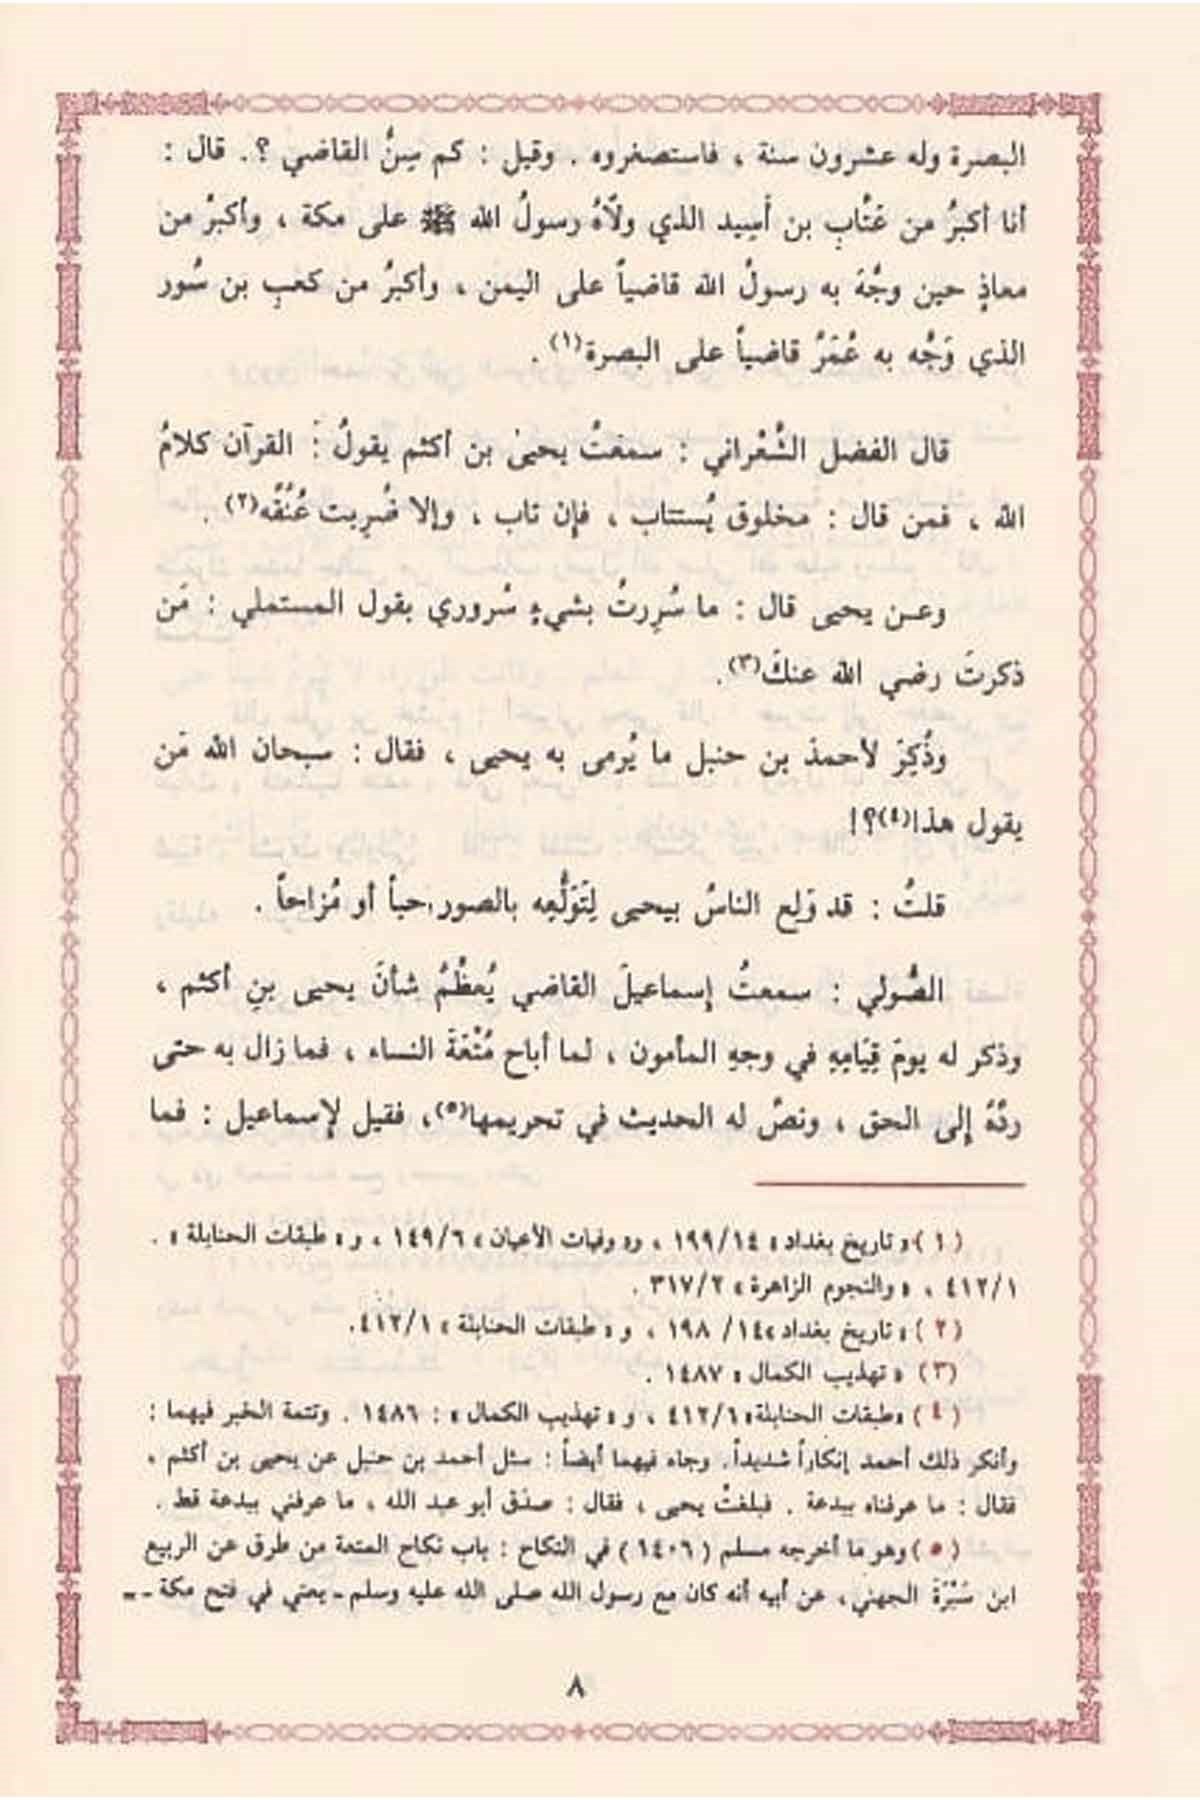 البصرة وله عشرون سنة ، فاستصغروه . وقيل : كم سِنُّ القاضي ؟. قال :
أنا أكبرُ من عَتَّابِ بن أَسِيد الذي ولّاهُ رسولُ الله ﷺ على مكة ، وأكبرُ من
معاذٍ حين وجَّهَ به رسولُ الله قاضياً على اليمن ، وأكبرُ من كعبِ بن سُور
الذي وَجَّه به عُمَرُ قاضياً على البصرة(١) .
قال الفضل الشَّعْراني : سمعتُ يحيىٰ بن أكثم يقولُ : القرآن كلامُ
الله ، فمن قال : مخلوق يُستتاب ، فإن تاب ، وإلا ضُرِبت عُنُقُه(٢) .
وعن يحيى قال : ما سُرِرتُ بشيءٍ سُروري بقول المستملي : مَن
ذكرتَ رضي الله عنكَ(٣).
وذُكِرَ لأحمدَ بن حنبل ما يُرمى به يحيى ، فقال : سبحان الله مَن
يقول هذا(٤)؟!
قلتُ : قد وَلِع الناسُ بيحيى لِتَوَلُّعِه بالصور،حباً أو مُزاحاً .
الصُّولي : سمعتُ إسماعيلَ القاضي يُعظِّمُ شأنَ يحيى بنِ أكثم ،
وذكر له يومَ قِيَامِهِ في وجهِ المأمون ، لما أباح مُتْعَةَ النساء ، فما زال به حتى
ردَّهُ إلى الحق ، ونصَّ له الحديث في تحريمها(٥)، فقيل لإسماعيل : فما
(١) «تاريخ بغداد» ١٩٩/١٤ ، و«وفيات الأعيان» ١٤٩/٦ ، و« طبقات الحنابلة » .
٤١٢/١ ، «والنجوم الزاهرة» ٣١٧/٢ .
(٢) «تاريخ بغداد»١٤/ ١٩٨ ، و « طبقات الحنابلة » ٤١٢/١.
(٣) « تهذيب الكمال » ١٤٨٧ .
(٤) «طبقات الحنابلة» ٤١٢/٦ ، و « تهذيب الكمال » : ١٤٨٦ . وتتمة الخبر فيهما :
وأنكر ذلك أحمد إنكاراً شديداً. وجاء فيهما أيضاً : سئل أحمد بن حنبل عن يحيى بن أكثم ،
فقال : ما عرفناه ببدعة . فبلغتْ يحيى ، فقال : صدَق أبو عبد الله ، ما عرفني ببدعة قط .
(٥) وهو ما أخرجه مسلم (١٤٠٦) في النكاح : باب نكاح المتعة من طرق عن الربيع
ابن سَبْرَةَ الجهني، عن أبيه أنه كان مع رسول الله صلى الله عليه وسلم ـ يعني في فتح مكة ـ ـ
٨